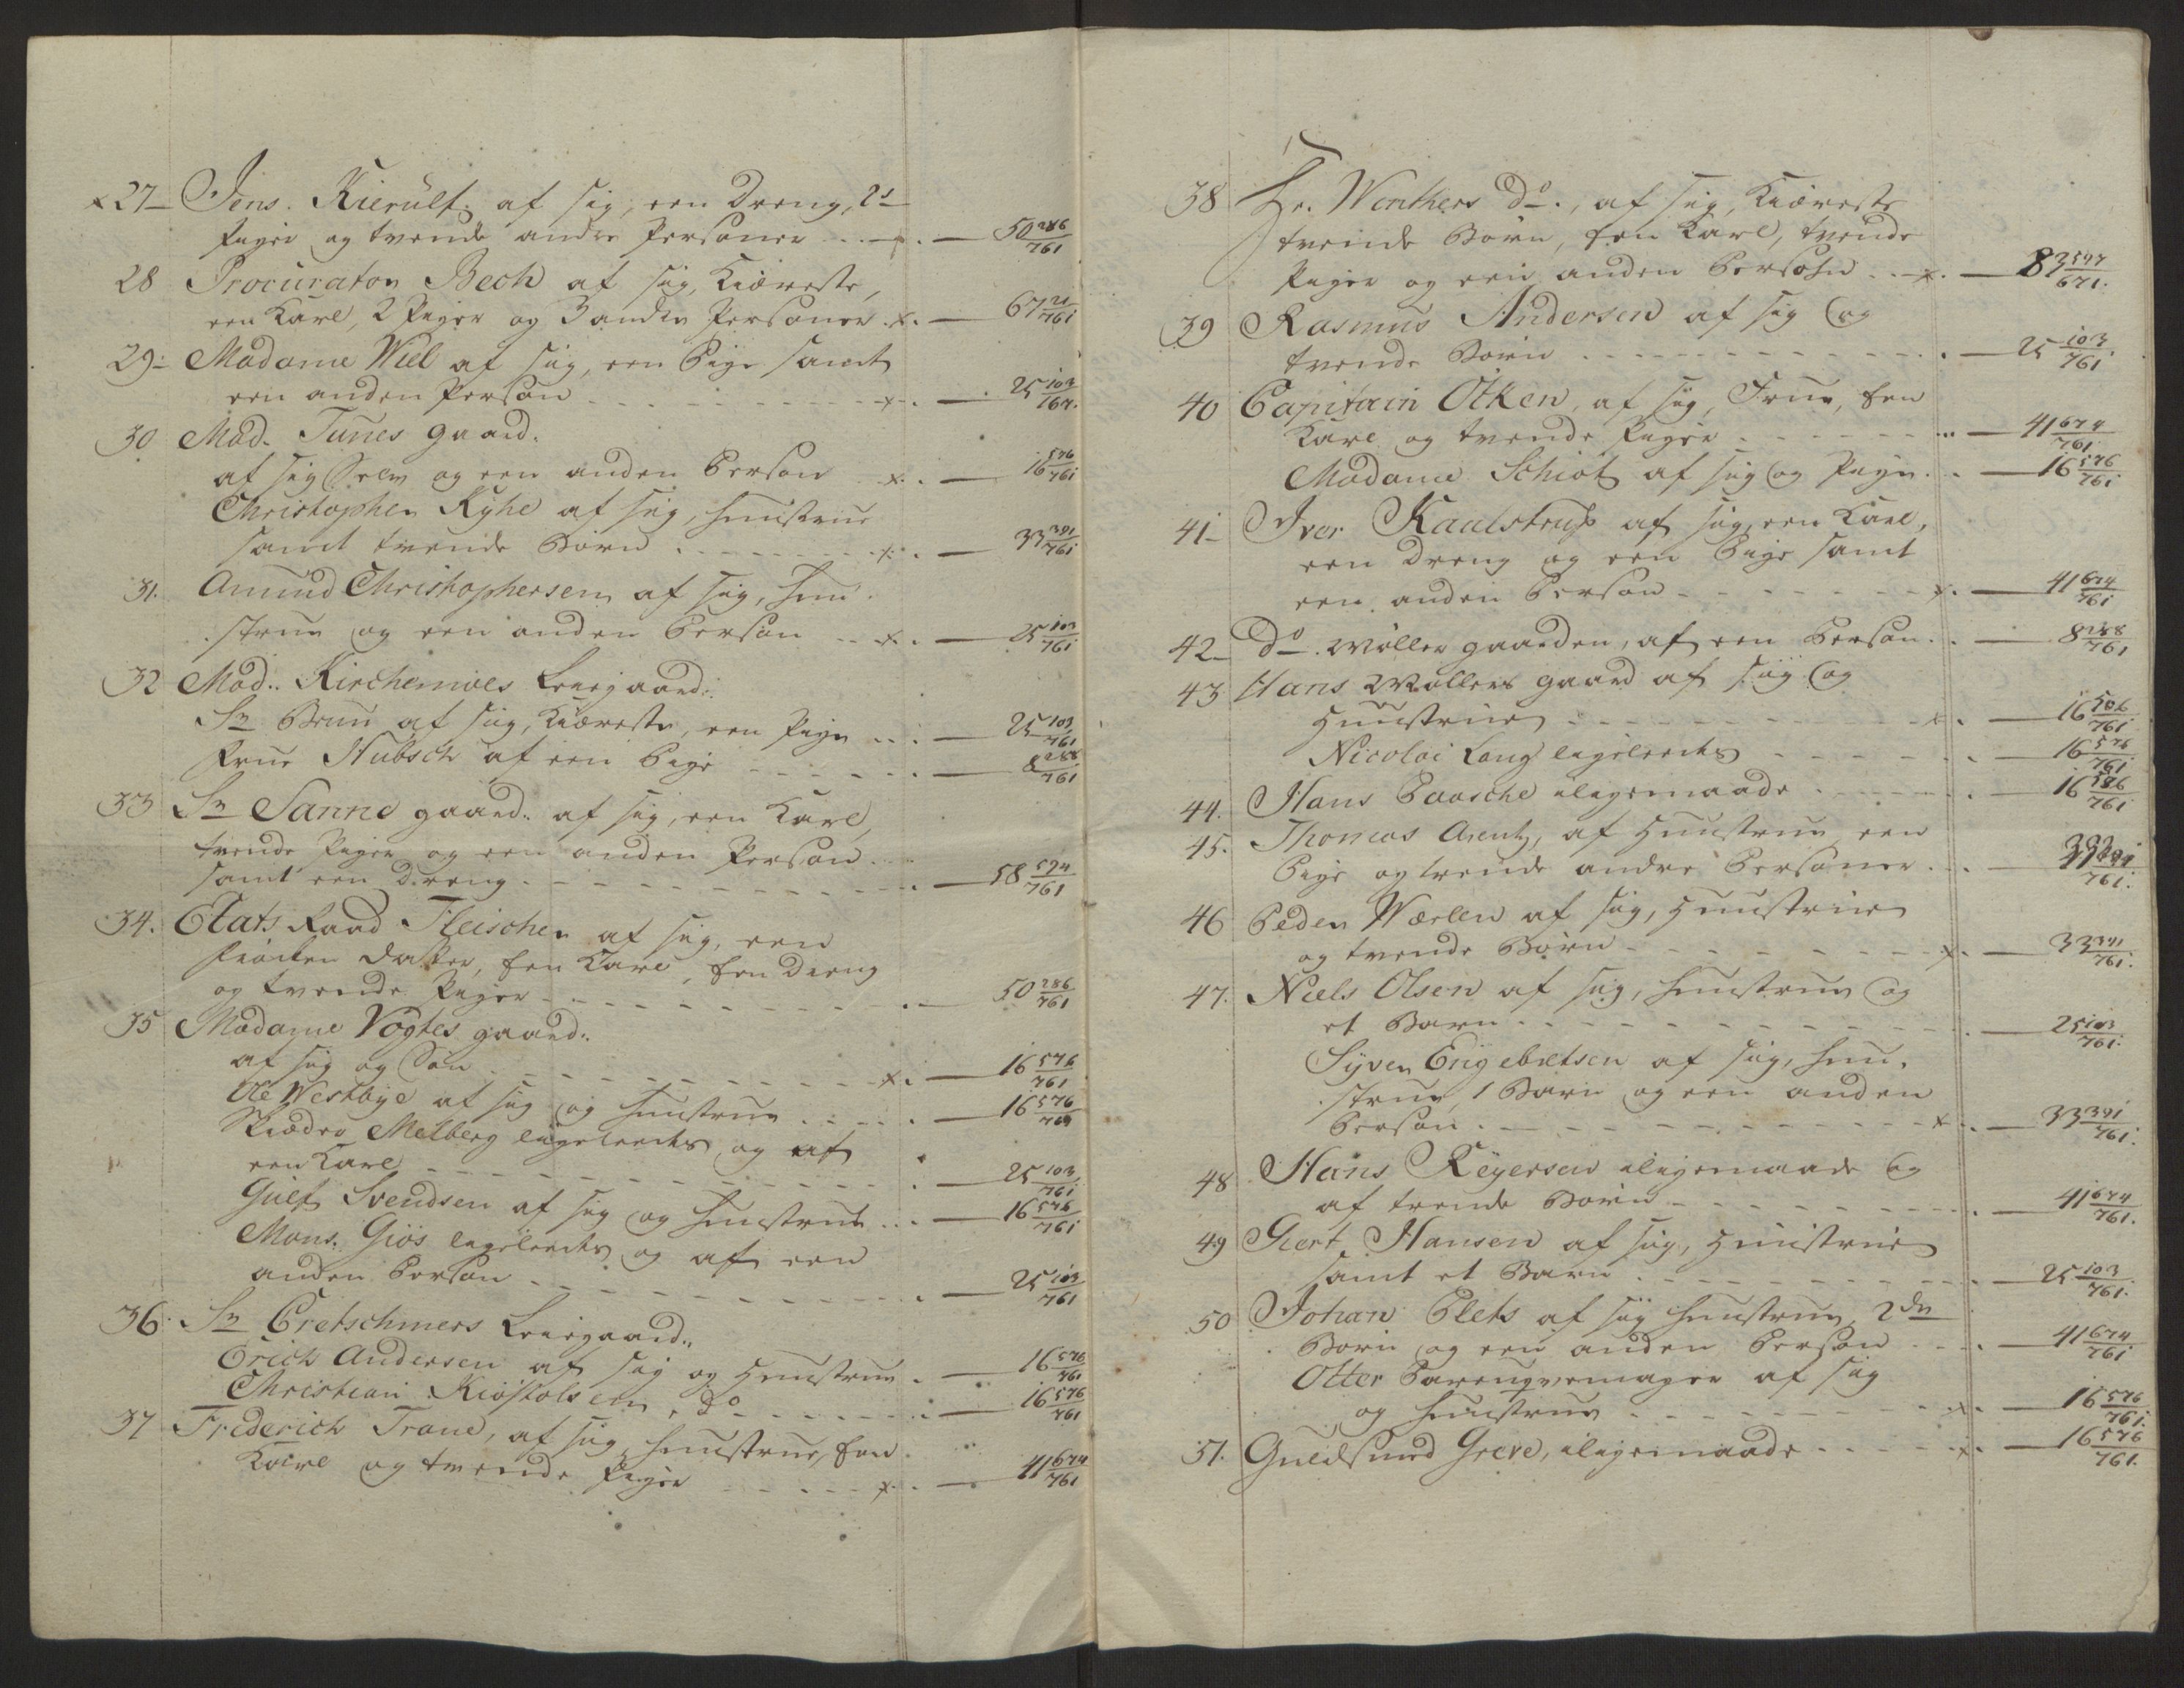 27 Jens Kierulf af sig, een Dreng, 2de
Piger og tvende andre Personer - 50 286/761
28 Procurator Bech af sig, Kiæreste,
een Karl, 2 Piger og 3 anden Personer x. - 67 21/761
29 Madame Wiel af sig, een Pige samt
een anden Person x. - 25 103/761
30 Mad. Tunes gaard.
af sig og een anden Person x. - 16 576/761
Christopher Ryhe af sig, Huustrue
samt tvende Børn x. - 33 391/761
31. Amund Christophersen af sig, Huu-
strue og een anden Person x. - 25 103/761
32 Mad. Leiegaard:
Sr Brun af sig, Kiæreste, een Pige - 25 103/761
Frue Hübsch af een Pige - 8 288/761
33 Sr Sanne gaard: af sig, een Karl,
tvende Piger og een anden Person
samt een Dreng - 58 574/761
34. Etats Raad Fleischer af sig, een
Frøiken Datter, een Karl, een Dreng
og tvende Piger - 50 286/761
35 Madame Vogtes gaard:
af sig og Søn x. - 16 576/761
Ole Westbye af sig og Huustrue - 16 576/761
Skræder Melberg ligeleedes og af
een Karl - 25 103/761
Gulf Svendsen af sig og Huustrue - 16 576/761
Mons. Giøs ligeleedes og af een
anden Person - 25 103/761
36. Sr Cretschmers Leiegaard:
Erich Andersen af sig og Huustrue - 16 576/761
Christian Kiøstolsen, do - 16 576/761
37 Friderich Trane, af sig, Huustrue, een
Karl og tvende Piger x. - 41 674/761
38 Hr. Wenthers do., af sig, Kiæreste
tvende Børn, een Karl, tvende
Piger og een anden Persohn x. - 83 /671.
39 Rasmus Andersen af sig og
tvende Børn - 25 103/761
40 Capitain Otken, af sig, Frue, een
Karl og tvende Piger - 41 674/761
Madame Schiøt af sig og Pige - 16 576/761
41 Iver Kaalstrup af sig, een Karl,
een Dreng og een Pige samt
een anden Person x. - 41 674/761
42 do. Møller gaarden, af een Person - 8 288/761
43 Hans Møllers gaard af sig og
Huustrue x. - 16 576/761
Nicolai Lang ligeleedes - 16 576/761
44. Hans Paasche iligemaade - 16 576/761
45. Thomas Arentz, af Huustrue een
Pige og trende andre Personer - /761.
46 Peder Wærlen af sig, Huustrue
og tvende Børn x. - 33 391/761.
47. Niels Olsen af sig, Huustrue og
et Barn - 25 103/761.
Syver Engebretsen af sig, Huu-
strue, 1 Barn og een anden
Person x. - 33 391/761.
48 Hans Reyersen iligemaade og
af trende Børn - 41 674/761.
49 Giert Hansen af sig, Huustrue
samt et Barn - 25 103/761.
50 Johan Plets af sig Huustrue, 2de
Børn og een anden Person - 41 674/761
Otter Parenqvemager af sig
og Huustrue x. - 16 576/761.
51. Guldsmed Greve, iligemaade x. - 16 576/761.